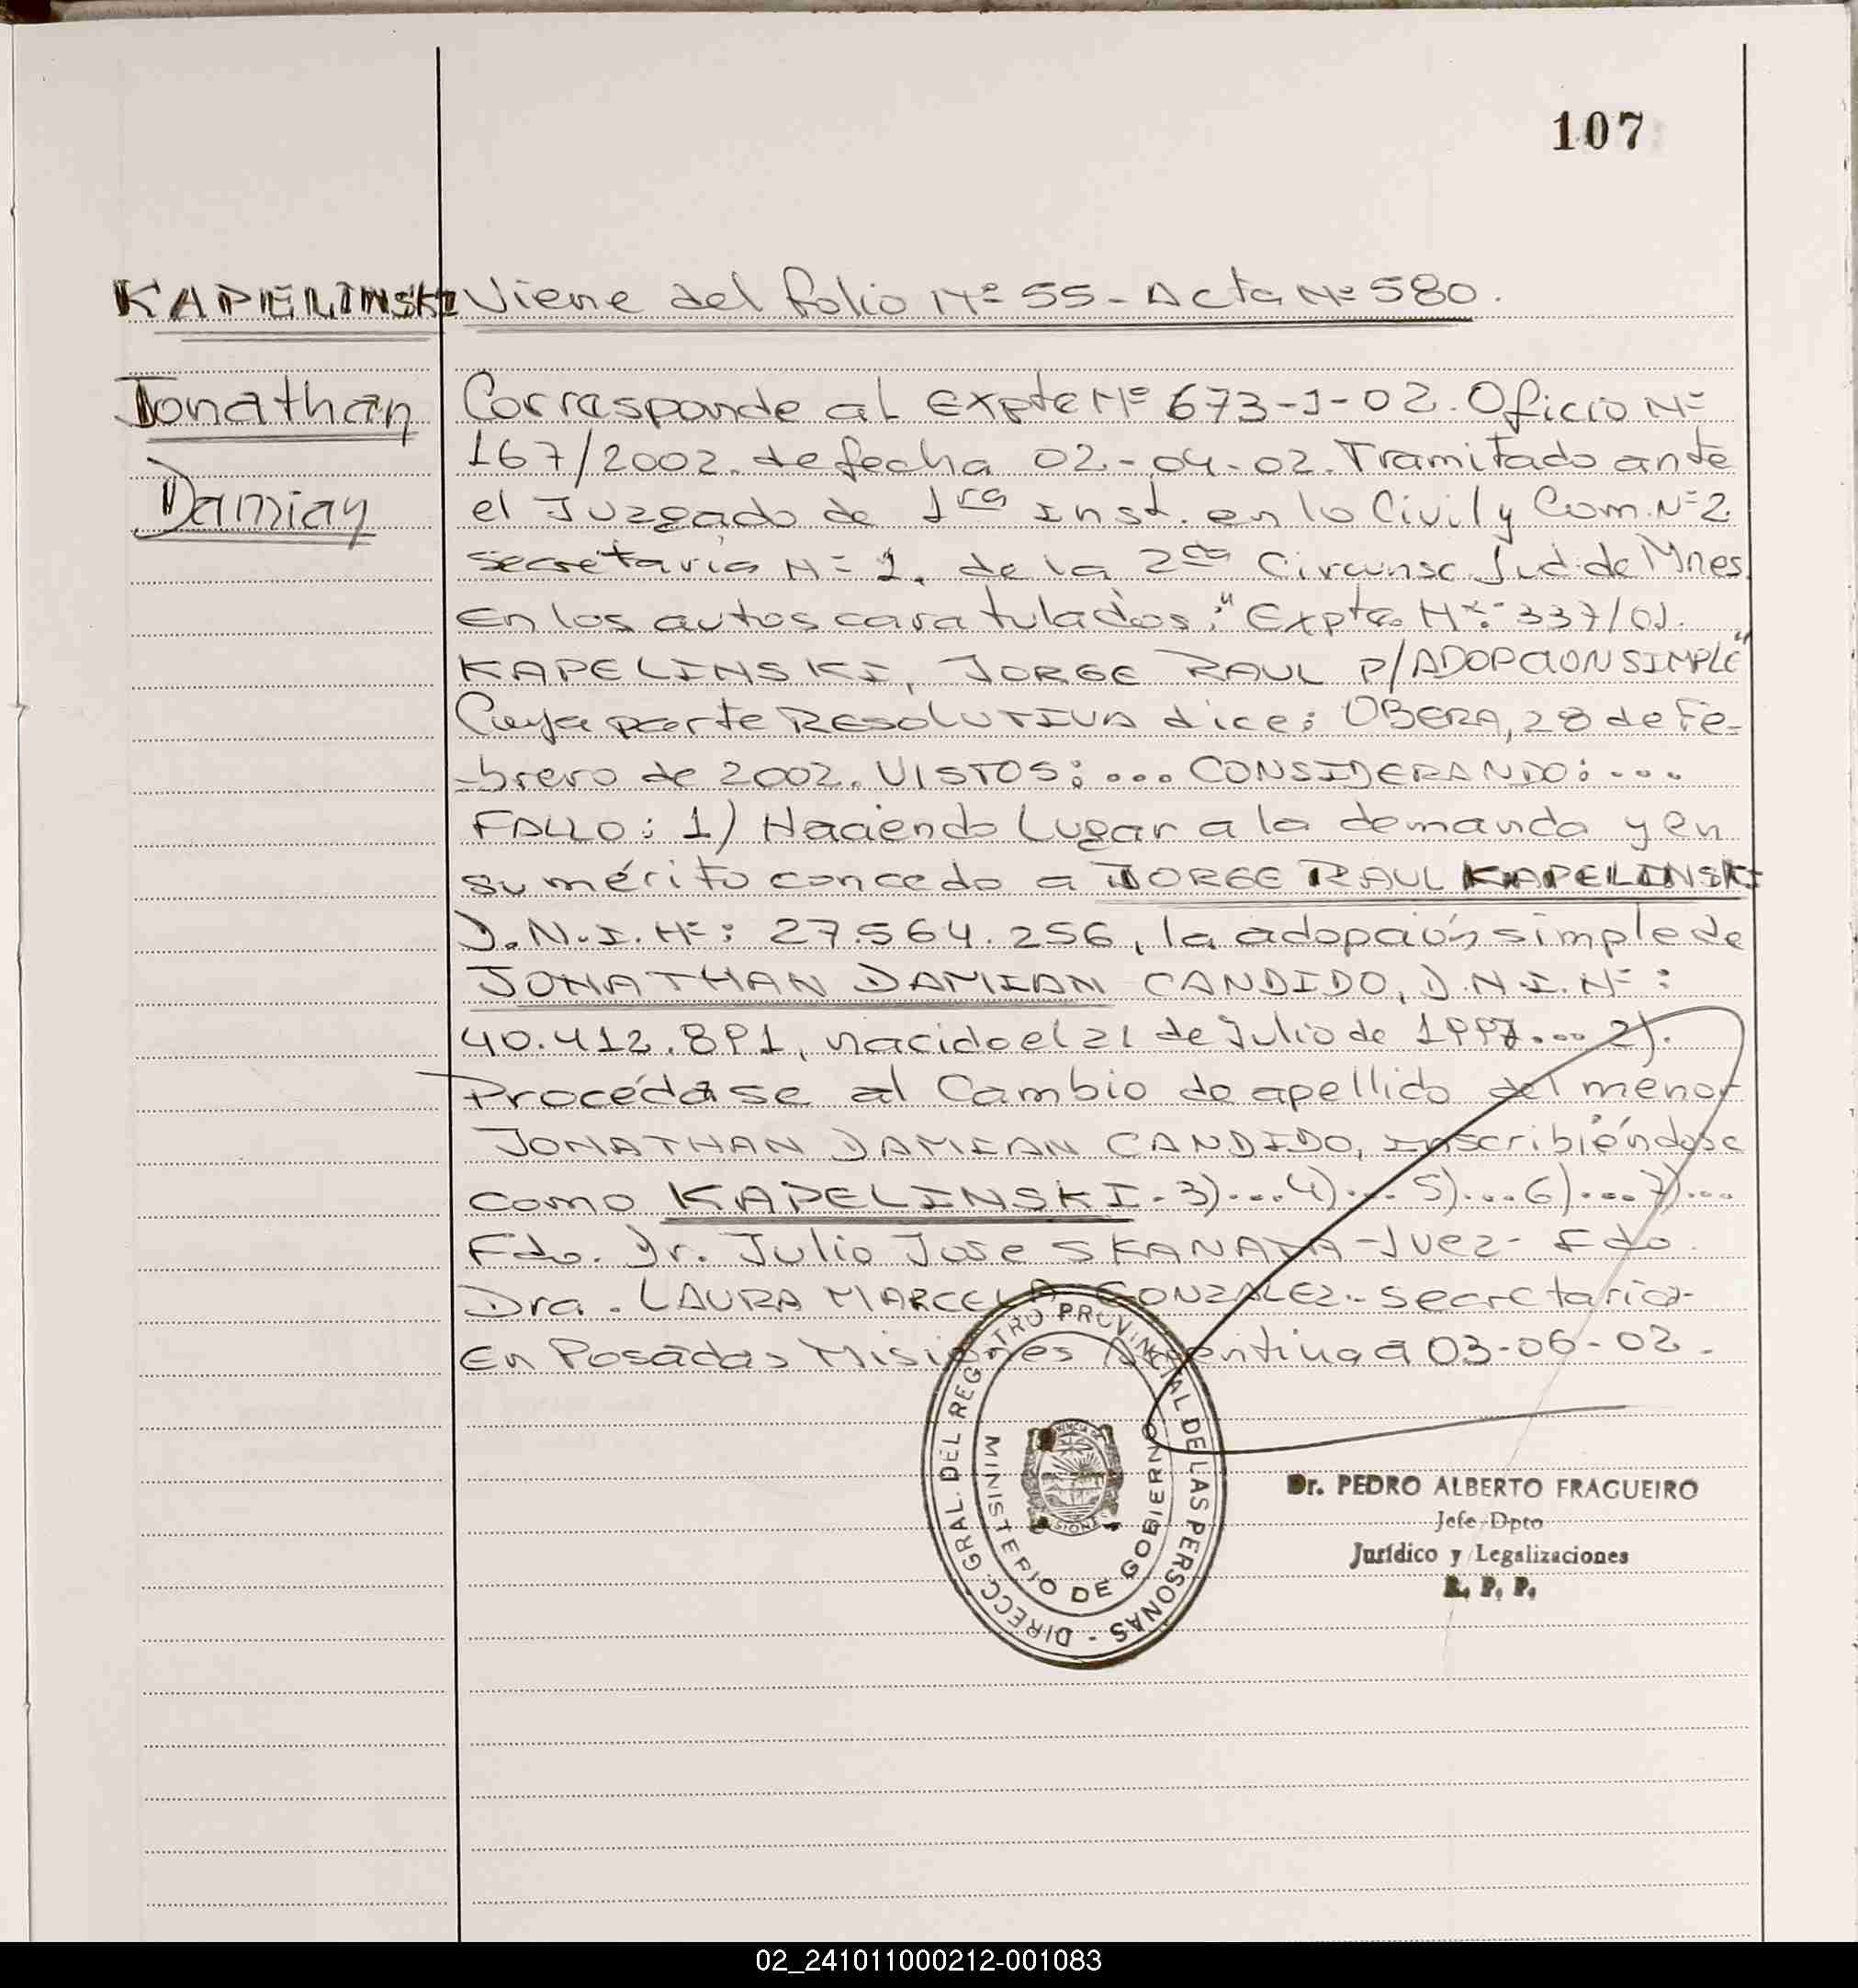 107
KAPELINSKI Viene del folio Nº 55 - Acta Nº 580.
Jonathan Corresponde al Expte Nº 673-J-02. Oficio Nº
167/2002. de fecha 02-04-02. Tramitado ante
Damian el Juzgado de 1ra Inst. en lo Civil y Com. Nº 2.
Secretaria Nº 1. de la 2da Circunsc. Jud. de Mnes.
En los autos caratulados: "Expte. Nº: 337/01.
KAPELINSKI, JORGE RAUL P/ADOPCION SIMPLE"
Cuya parte RESOLUTIVA dice: OBERA, 28 de Fe-
-brero de 2002. VISTOS: ... CONSIDERANDO: ...
FALLO: 1) Haciendo Lugar a la demanda y en
su mérito concedo a JORGE RAUL KAPELINSKI
D.N.I. Nº: 27.564.256, la adopción simple de
JONATHAN DAMIAN CANDIDO, D.N.I. Nº:
40.412.891, nacido el 21 de Julio de 1997... 2).
Procédase al Cambio de apellido del menor
JONATHAN DAMIAN CANDIDO, inscribiéndose
como KAPELINSKI. 3)... 4)... 5)... 6)... 7)...
Fdo. Dr. Julio Jose SKANATA - Juez - Fdo.
Dra. LAURA MARCELA GONZALEZ. - Secretaria-
En Posadas Misiones Argentina a 03-06-02.
DIRECC. GRAL. DEL REGISTRO PROVINCIAL DE LAS PERSONAS -
MINISTERIO DE GOBIERNO
Dr. PEDRO ALBERTO FRAGUEIRO
Jefe Dpto
Jurídico y Legalizaciones
R. P. P.
02_241011000212-001083